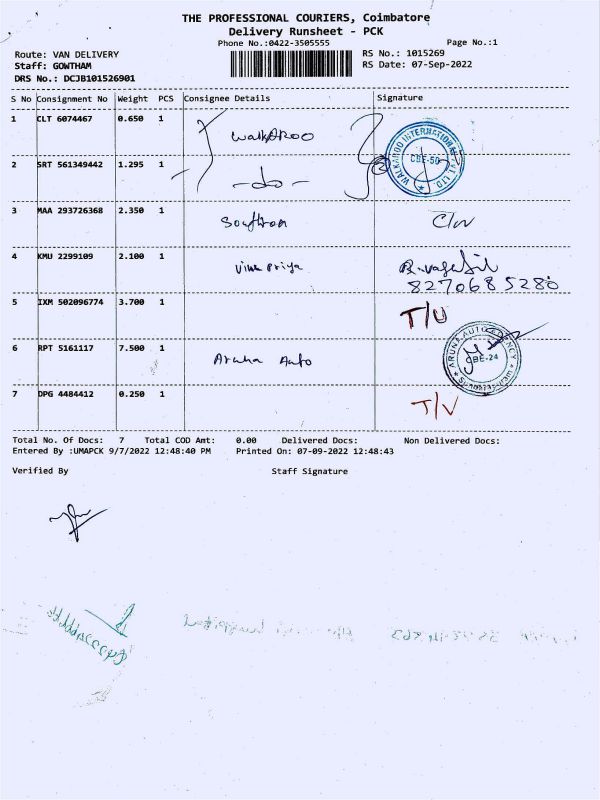 THE PROFESSIONAL COURIERS, Coimbatore
Delivery Runsheet - PCK
Phone No.:0422-3505555 Page No.:1
Route: VAN DELIVERY RS No.: 1015269
Staff: GOWTHAM RS Date: 07-Sep-2022
DRS No.: DCJB101526901
S No Consignment No Weight PCS Consignee Details Signature
1 CLT 6074467 0.650 1 Walkaroo
WALKAROO INTERNATIONAL PVT. LTD. CBE-50
2 SRT 561349442 1.295 1 -do-
3 MAA 293726368 2.350 1
4 KMU 2299109 2.100 1 Priya
8270685280
5 IXM 502096774 3.700 1 T/U
6 RPT 5161117 7.500 1 Aruna Auto
ARUNA AUTO AGENCY CBE-24
7 DPG 4484412 0.250 1 T/V
Total No. Of Docs: 7 Total COD Amt: 0.00 Delivered Docs: Non Delivered Docs:
Entered By :UMAPCK 9/7/2022 12:48:40 PM Printed On: 07-09-2022 12:48:43
Verified By Staff Signature